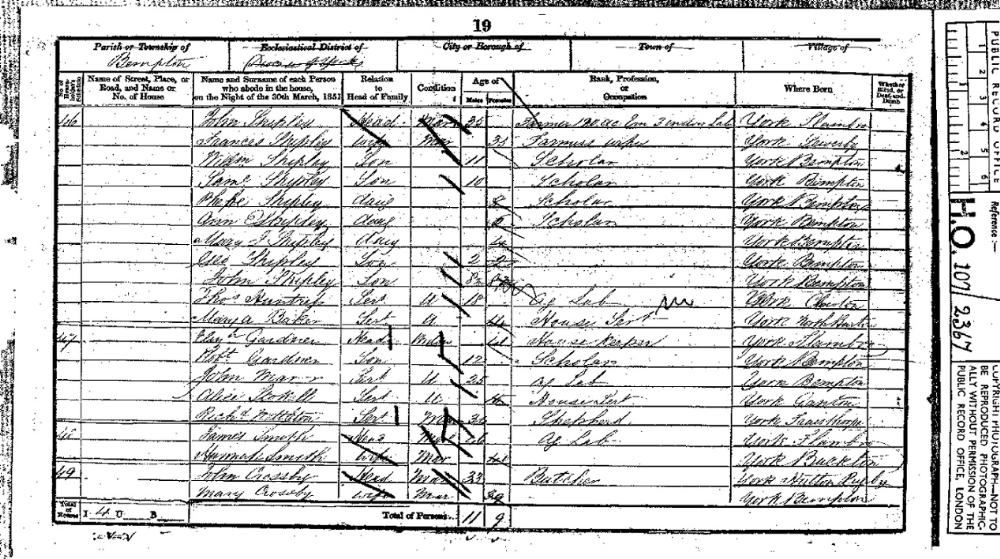 19
Parish or Township of Ecclesiastical District of City or Borough of Town of Village of
Bempton
No. of Householder's Schedule Name of Street, Place, or Road, and Name or No. of House Name and Surname of each Person who abode in the house, on the Night of the 30th March, 1851 Relation to Head of Family Condition Age of Males Females Rank, Profession, or Occupation Where Born Whether Blind, or Deaf-and-Dumb
46 John Shipley Head Mar 35 Farmer 120 ac Em 3 Lab York
Frances Shipley Wife Mar 33 Farmers wife York
Willm Shipley Son 11 Scholar York Bempton
Saml Shipley Son 10 Scholar York Bempton
Phebe Shipley daug 8 Scholar York Bempton
Ann E Shipley daug Scholar York Bempton
Mary J Shipley daug York Bempton
Geo Shipley Son 2 York Bempton
John Shipley Son York Bempton
Thos Huntree Sert U 18 Ag Lab York
Mary A Baker Sert U House Sert York North Burton
47 Gardner Head House Keeper York
Robt Gardner Son 12 Scholar York Bempton
John Marr Sert U 25 Ag Lab York Bempton
Alice Sert U House Sert York Ganton
Richd Sert Mar Shepherd York Fraisthorpe
48 James Smith Head Mar Ag Lab York Flambro
Hannah Smith Wife Mar York Buckton
49 John Crossby Head Mar 33 Butcher York Hutton
Mary Crosby Wife Mar York Bempton
Total of Houses I 4 U B Total of Persons 11 9
PUBLIC RECORD OFFICE
1 2 3 4 5 6
Reference :—
H.O. 107/2367
COPYRIGHT PHOTOGRAPH—NOT TO BE REPRODUCED PHOTOGRAPHICALLY WITHOUT PERMISSION OF THE PUBLIC RECORD OFFICE, LONDON